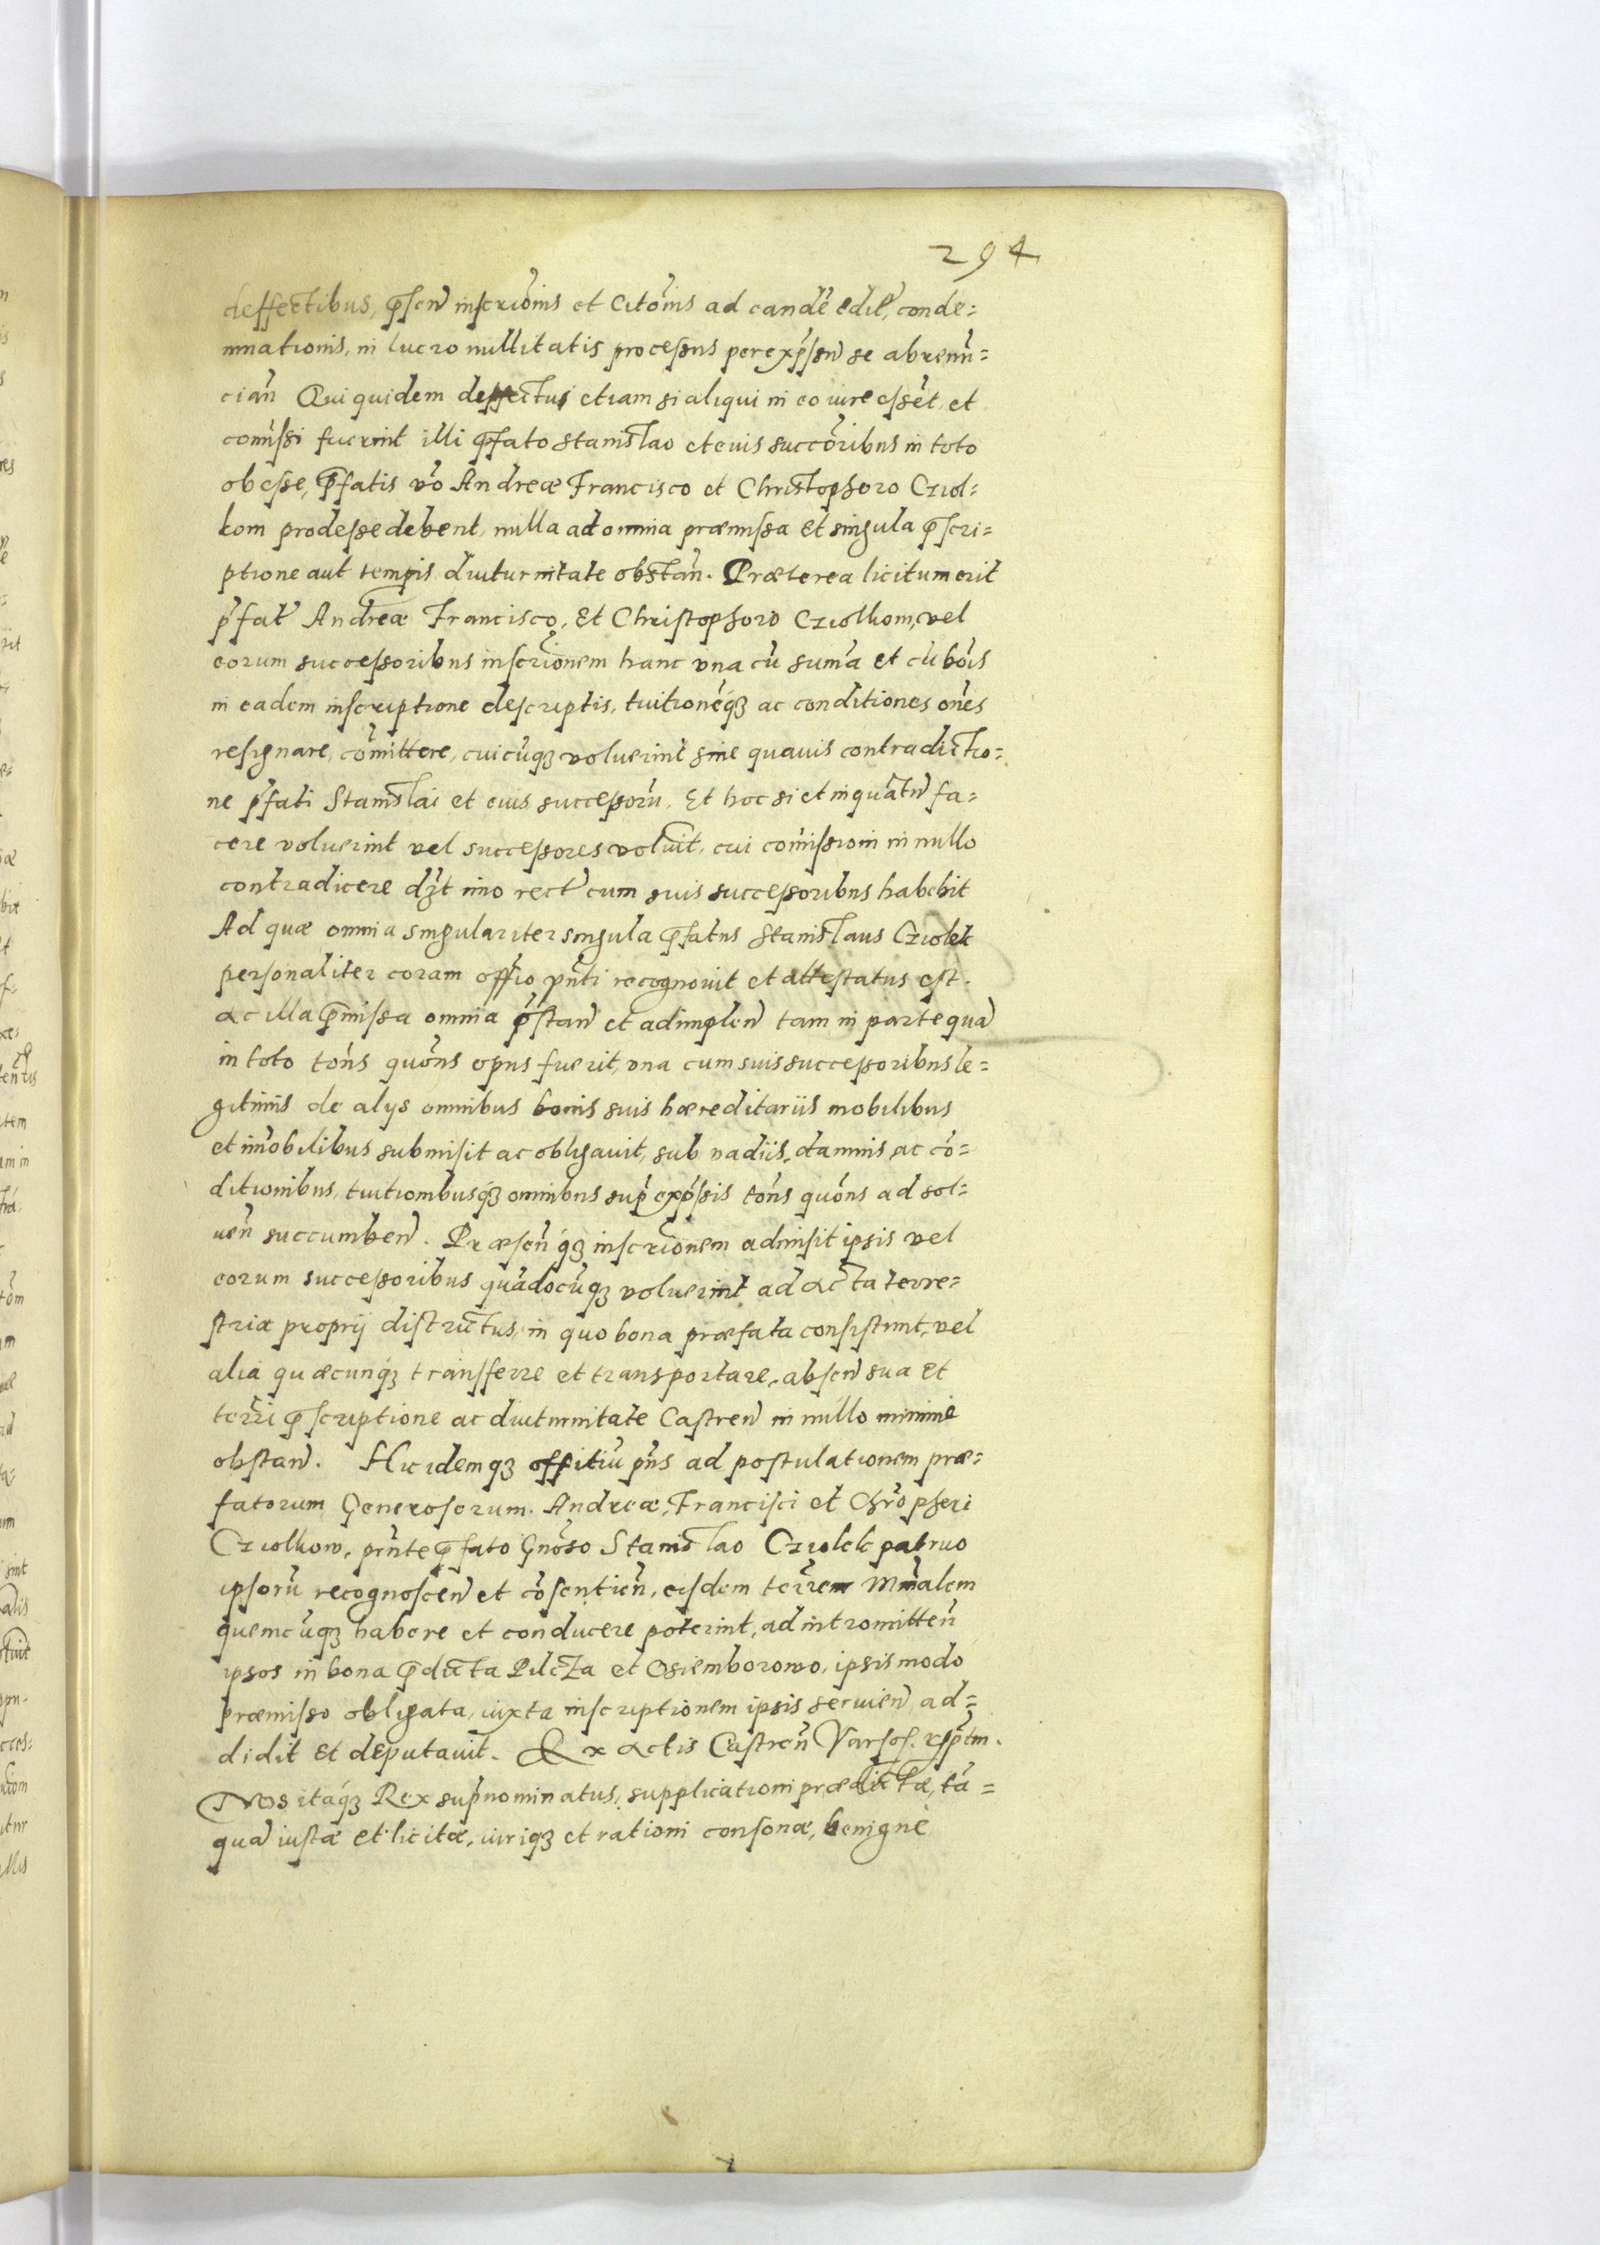 294
deffectibus, p̃sen̄ inscrio͠nis et Cito͠nis ad eandẽ edit̃, conde=
mnationis, in lucro nullitatis processus per expr̃ssu̅ se abrenũ=
cian̄ Qui quidem deffectus etiam si aliqui in eo iure essẽt, et
comĩssi fuerint illi p̃fato Stanislao et eius successõribus in toto
obesse, p̃fatis v͠o Andreæ Francisco et Christophoro Cziol=
kom prodesse debent, nulla ad omnia præmissa et singula p̃scri=
ptione aut tempis diuturnitate obstan̄. Præterea licitum erit
p̃fat̃ Andreæ Francisco, Et Christophoro Cziolkom, vel
eorum successoribus inscrio͠nem hanc vna cũ sum̃a et cũ bo͠is
in eadem inscriptione descriptis, tuitionẽq̃ʒ ac conditiones om̃es
resignare, com̃ittere, cuicũqʒ voluerint sine quauis contradictio=
ne p̃fati Stanislai et eius successorũ. Et hoc si et inquãtũ fa=
cere voluerint vel successores voluĩt, cui com̃issioni in nullo
contradicere d̃ʒt imo rect̃ cum suis successoribus habebit
Ad quæ omnia singulariter singula p̃fatus Stanislaus Cziolek
personaliter coram offi͠o pñti recognouit et attestatus est.
ac illa p̃missa omnia p̃stan̄ et adimplen̄ tam in parte quã
in toto to͠ns quo͠ns opus fuerit, vna cum suis successoribus le=
gitimis de alijs omnibus bonis suis hæreditariis mobilibus
et im̃obilibus submisit ac obligauit, sub vadiis, damnis, ac cõ=
ditionibus, tuitionibusq̃ʒ omnibus sup̃ exp̃ssis to͠ns quo͠ns ad sol=
uen̄ succumben̄. Præsen̄q̃ʒ inscrio͠nem admisit ipsis vel
eorum successoribus quãdocũqʒ voluerint ad acta terre=
striæ proprij districtus, in quo bona præfata consistunt, vel
alia quæcunq̃ʒ transferre et transportare, absen̄ sua et
terrĩ p̃scriptione ac diuturnitate Castren̄ in nullo minime
obstan̄. Hic idemqʒ offitiũ pñs ad postulationem præ=
fatorum Generosorum. Andreæ, Francisci et Chr͠opheri
Cziolkow, pñte p̃fato Gñoso Stanislao Cziolek patruo
ipsorũ recognoscen̄ et cõsentien̄, eisdem terrem Mĩnalem
quemcũqʒ habere et conducere poterint, ad intromitten̄
ipsos in bona p̃dicta Pilcza et Osiemborowo, ipsis modo
præmisso obligata, iuxta inscriptionem ipsis seruien̄, ad=
didit et deputauit. Ex actis Castren̄ Varsos. exp̃tm.
Nos itaq̃ʒ Rex sup̃nominatus, supplicationi prædictæ, tã=
quã iustæ et licitæ, iuriqʒ et rationi consonæ, benignè